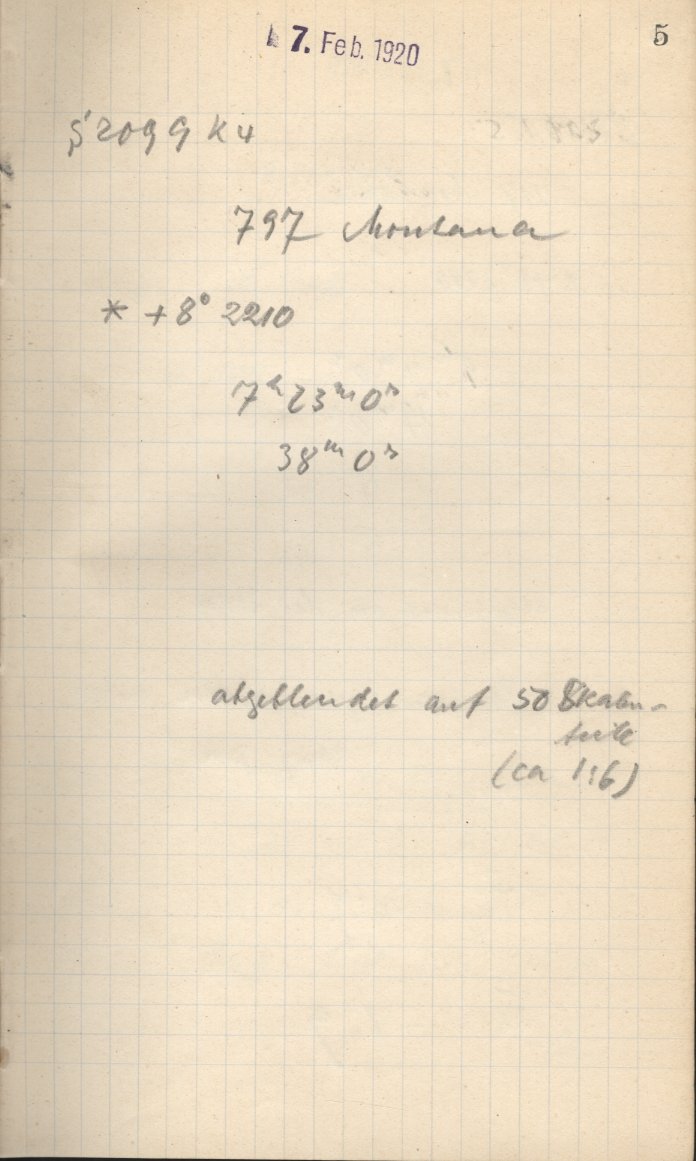 7. Feb. 1920
5
S 2099 K 4
797 Montana
* +8° 2210
7h 23m 0s
38m 0s
abgeblendet auf 50 Skalen-
teile
(ca 1:6)